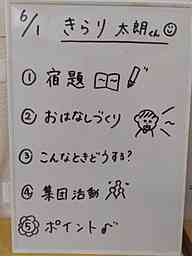 6/1 きらり 太朗くん
① 宿題
② おはなしづくり
③ こんなときどうする?
④ 集団活動
⑤ ポイント